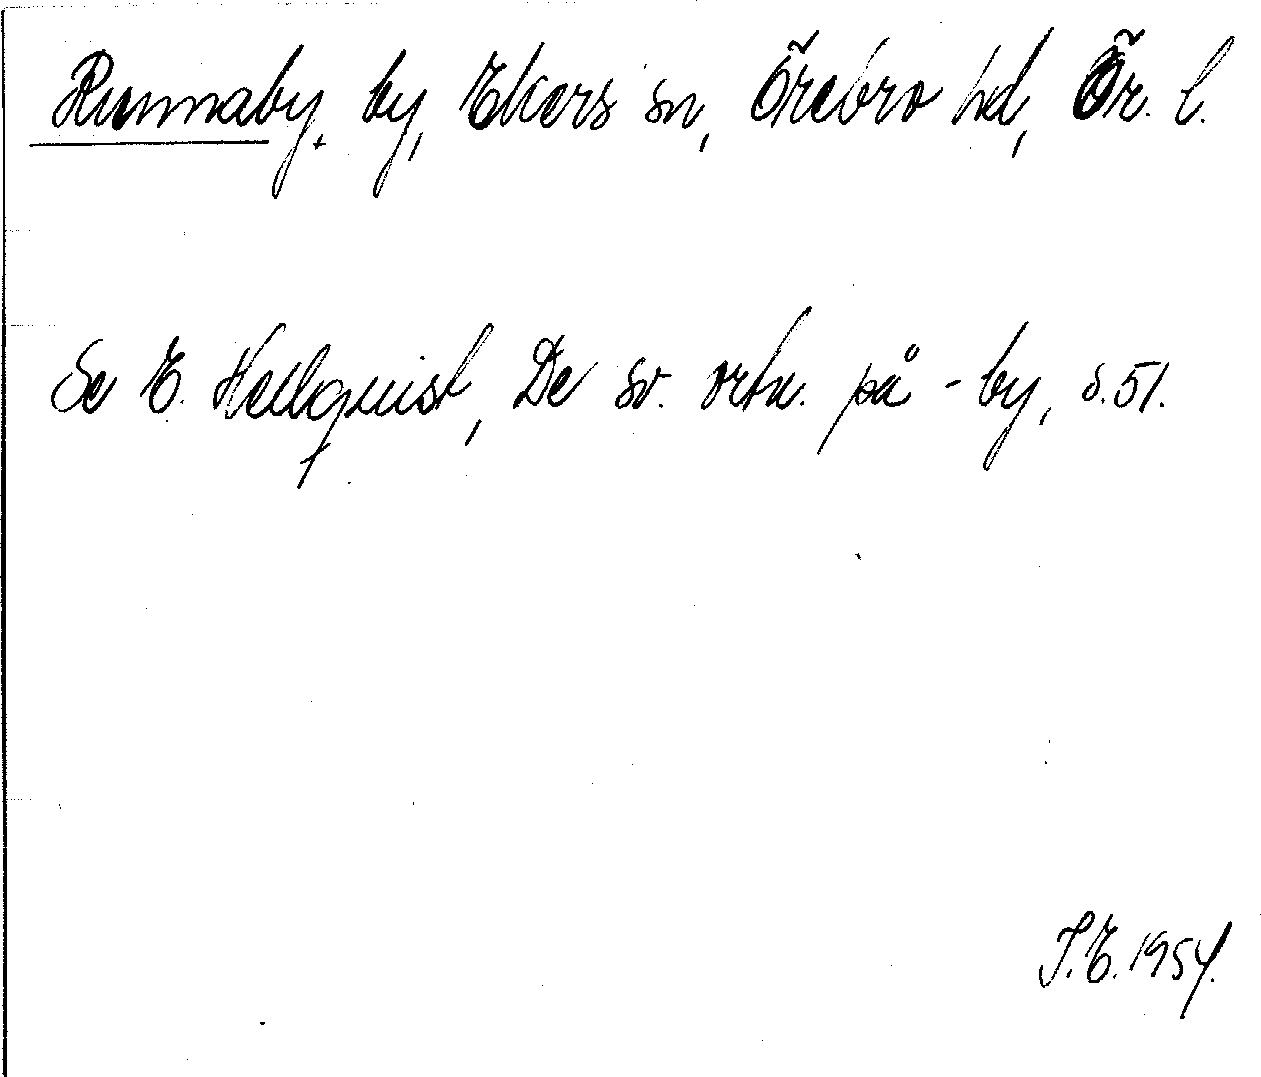 Runnaby, by, Ekers sn, Örebro hd, Ör. l.
Se E. Hellquist, De sv. ortn. på -by, s. 51.
I. E. 1954.